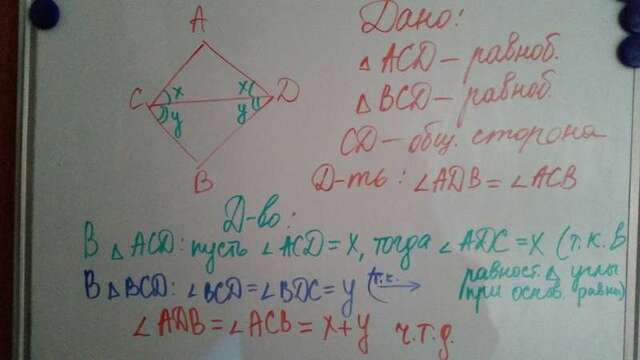 A
C
D
B
x
x
y
y
Дано:
△ ACD – равноб.
△ BCD – равноб.
CD – общ. сторона
Д-ть: ∠ADB = ∠ACB
Д-во:
В △ ACD: пусть ∠ACD = x, тогда ∠ADC = x (т.к. в
равност. △ углы
при основ. равны)
В △ BCD: ∠BCD = ∠BDC = y (т.к. →
∠ADB = ∠ACB = x + y ч.т.д.